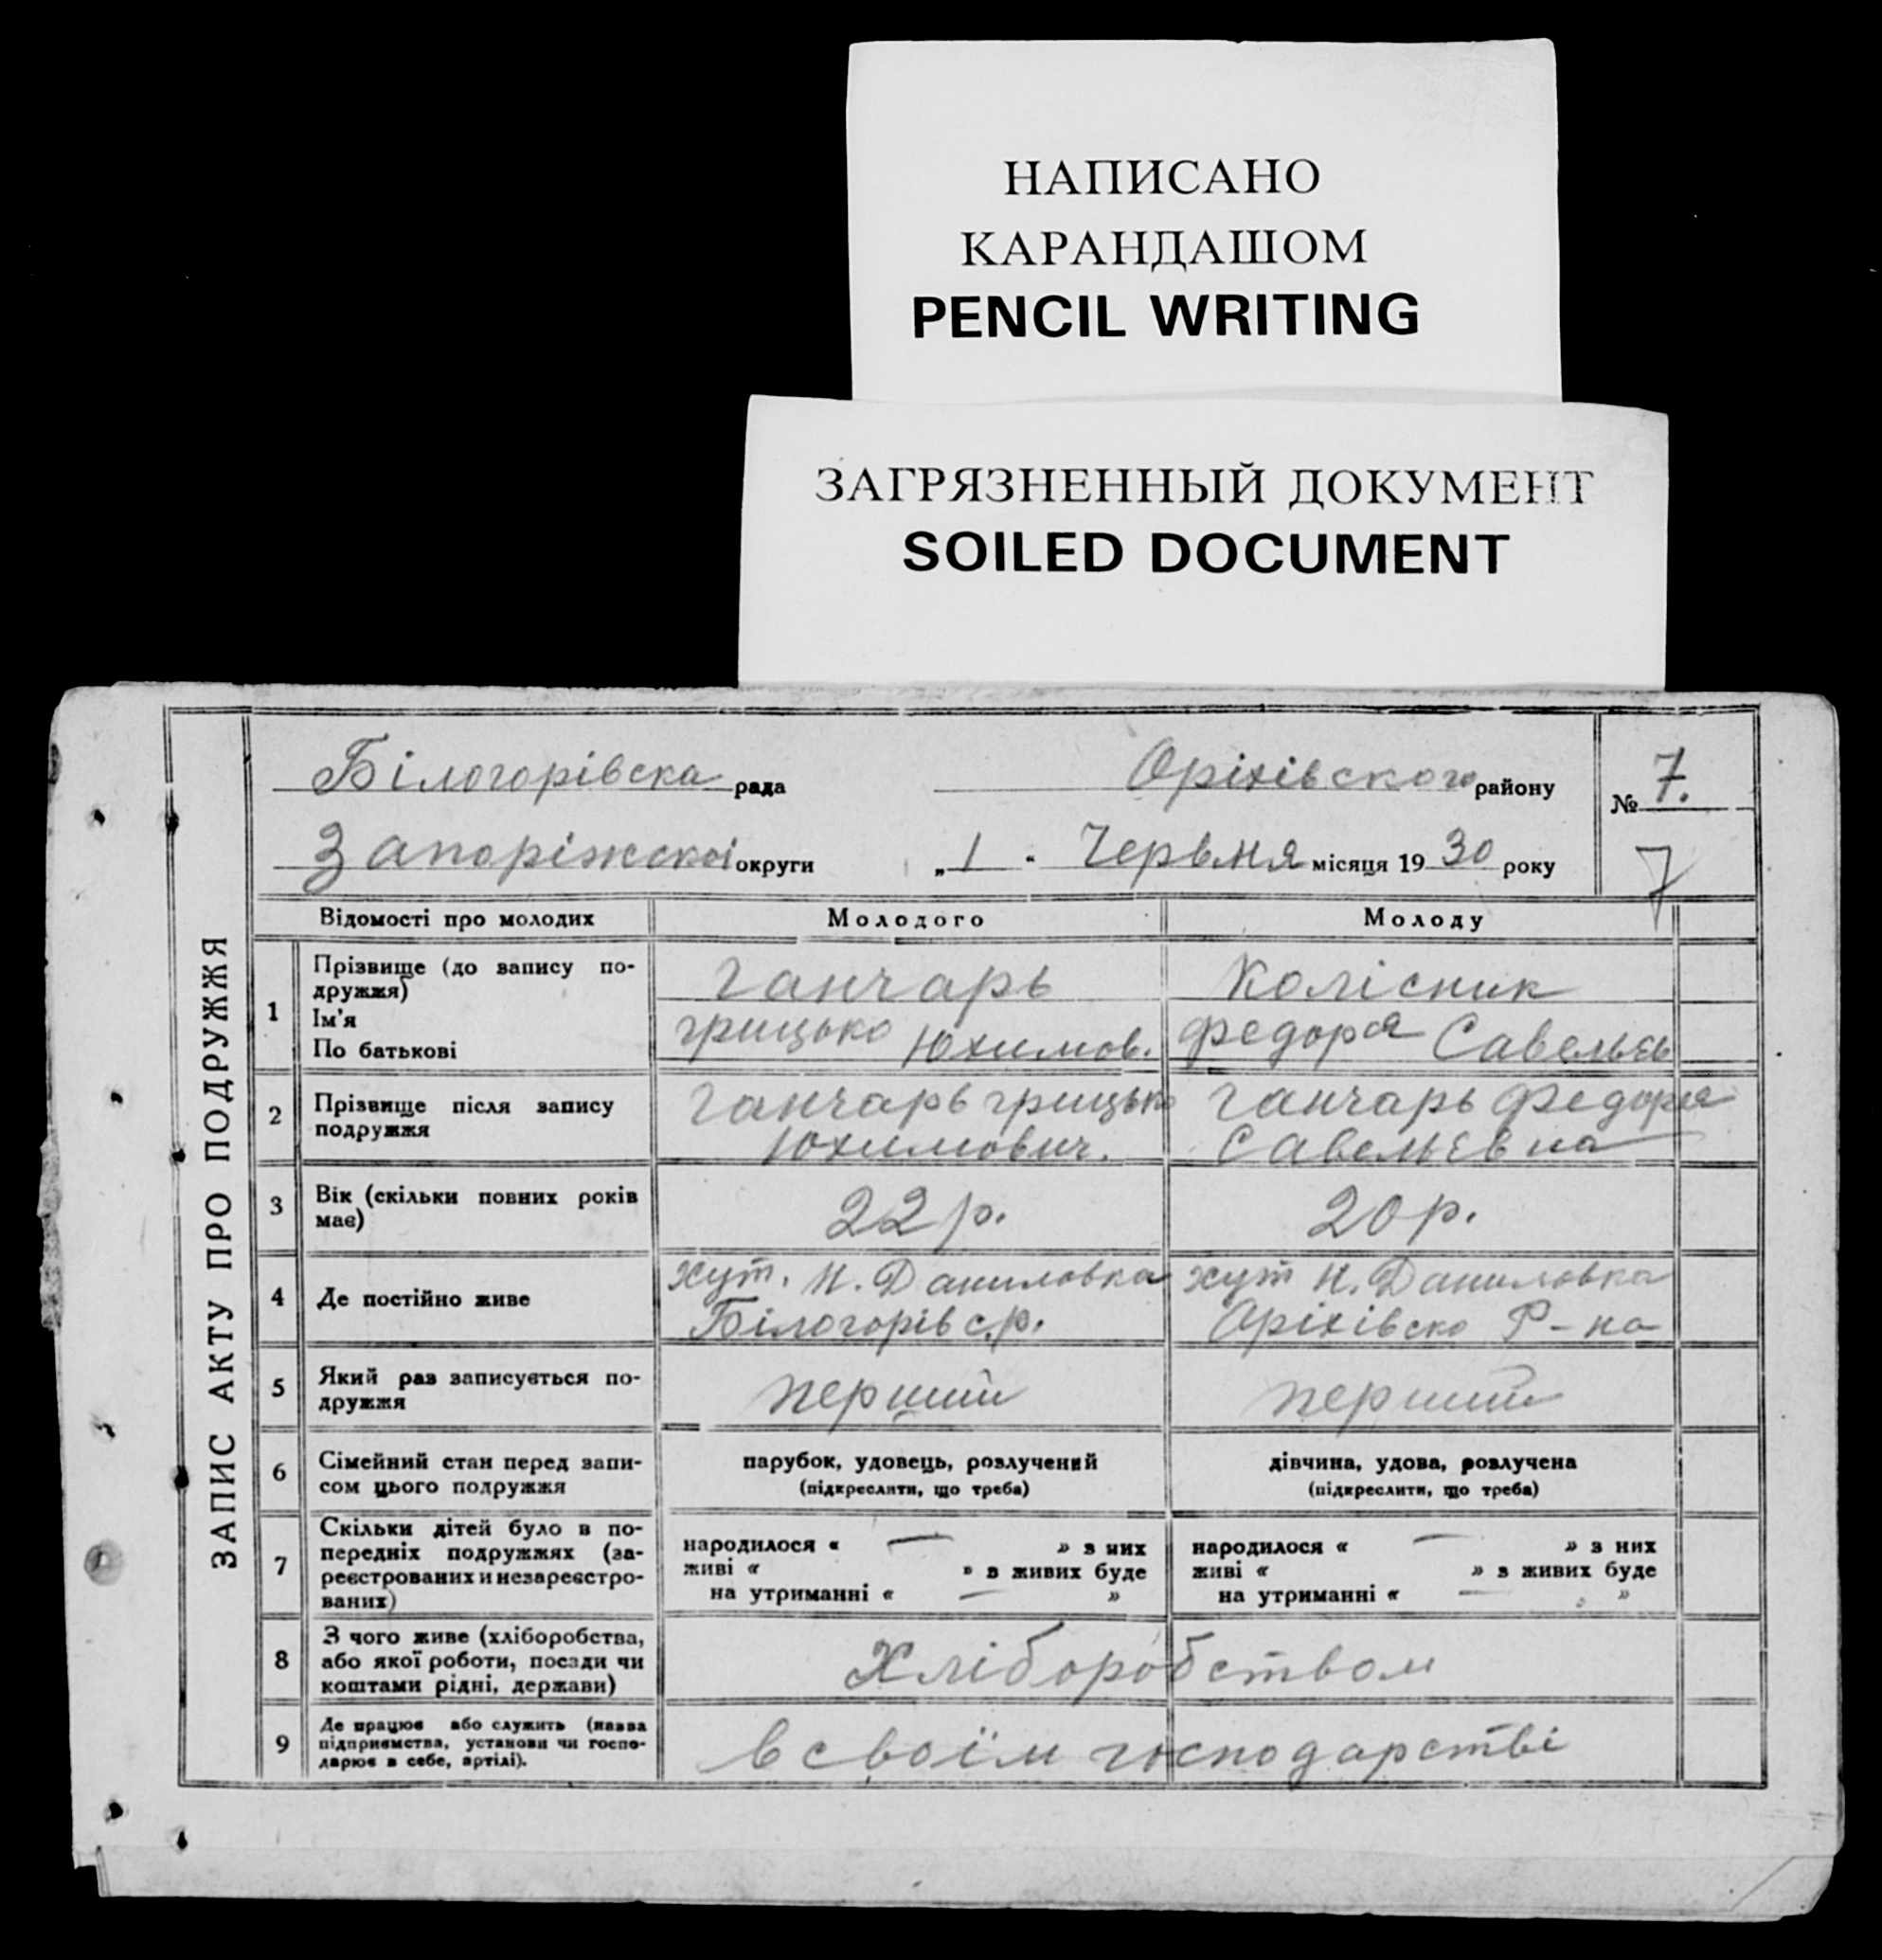 НАПИСАНО
КАРАНДАШОМ
PENCIL WRITING
ЗАГРЯЗНЕННЫЙ ДОКУМЕНТ
SOILED DOCUMENT
ЗАПИС АКТУ ПРО ПОДРУЖЖЯ
Білогорівска рада Оріхівского району № 7.
Запоріжскоі округи „1" Червня місяця 1930 року 7
Відомості про молодих Молодого Молоду
1 Прізвище (до запису по-
дружжя) Ганчарь Колісник
Ім'я
По батькові Грицько Юхимов. Федора Савельєв
2 Прізвище після запису
подружжя Ганчарь Грицько Ганчарь Федора
Юхимович. Савельєвна
3 Вік (скільки повних років
має) 22 р. 20 р.
4 Де постійно живе хут. Н. Даниловка хут Н. Даниловка
Білогорів с.р. Оріхівско Р-на
5 Який раз записується по-
дружжя перший перший
6 Сімейний стан перед запи-
сом цього подружжя парубок, удовець, розлучений дівчина, удова, розлучена
(підкреслити, що треба) (підкреслити, що треба)
7 Скільки дітей було в по-
передніх подружжях (за-
реєстрованих и незареєстро-
ваних) народилося « — » з них народилося « — » з них
живі « » з живих буде живі « » з живих буде
на утриманні « — » на утриманні « — »
8 З чого живе (хліборобства,
або якої роботи, посади чи
коштами рідні, держави) Хліборобством
9 Де працює або служить (назва
підприємства, установи чи госпо-
дарює в себе, артілі). в своїм господарстві